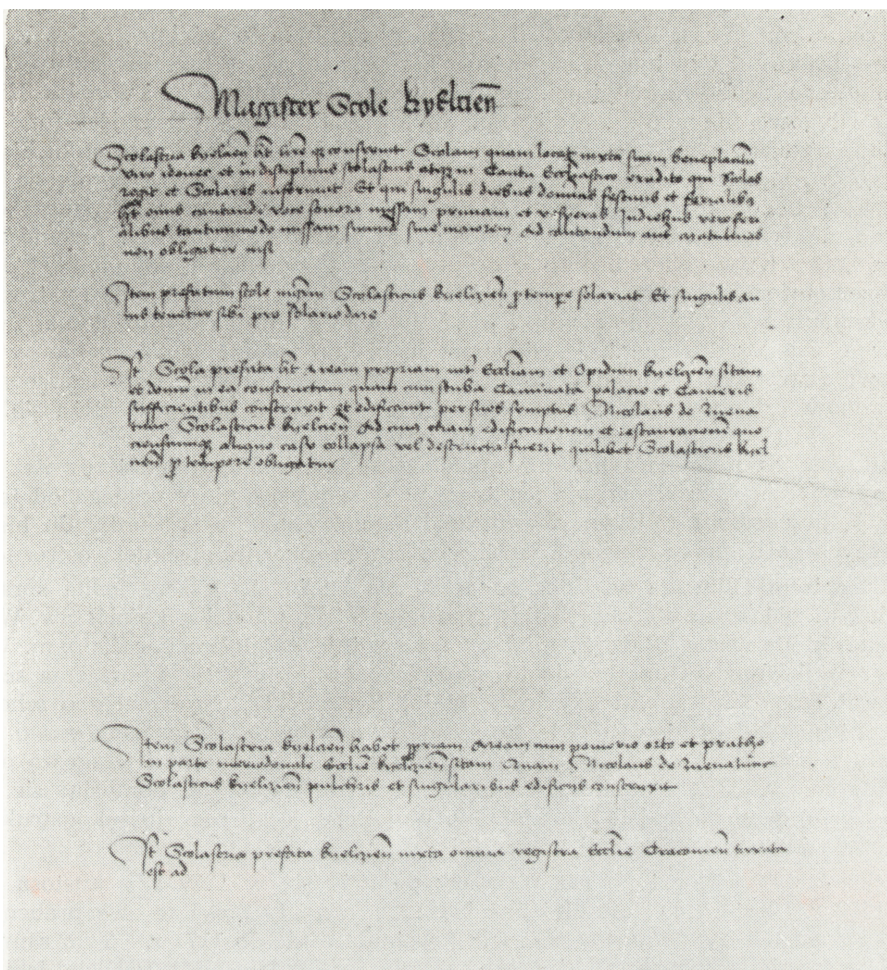 Magister Scole kyelcien
Scolastria kyelcien hēt Scolam quam locat iuxta suum beneplacitum
viro idoneo et in disciplinis scolasticis atque in Cantu Ecclesiastico erudito qui Scolas
regit et Scolares Et qui singulis diebus festivis et ferialibus
cantandi voce sonora missam primam et vesperas Indiebus vero feri
alibus tantummodo missam summam sive maiorem Ad cantandum autem
non obligatur nisi
Item prefatum scole Scolasticus kyelcien pro tempore solariat Et singulis an
nis tenetur sibi pro solario dare
It Scola prefata hēt Aream propriam int Eccliam et Opidum kyelcien sitam
et domum in ea constructam quam cum stuba Caminata palacio et Cameris
sufficientibus construxit et edificavit per suos sumptus Nicolaus de
Scolasticus kyelcien Ad cuius etiam edificationem et restauracionem quo
cienscumque aliquo casu collapsa vel destructa fuerit quilibet Scolasticus kyel
cien pro tempore obligatur
Item Scolastria kyelcien habet propriam Aream cum pomerio orto et pratho
in parte meridionale Ecclie kyelcien sitam Quam Nicolaus de
Scolasticus kyelcien pulchris et singularibus edificiis construxit
It Scolastria prefata kyelcien iuxta omnia registra Ecclie Cracovien taxata
est ad